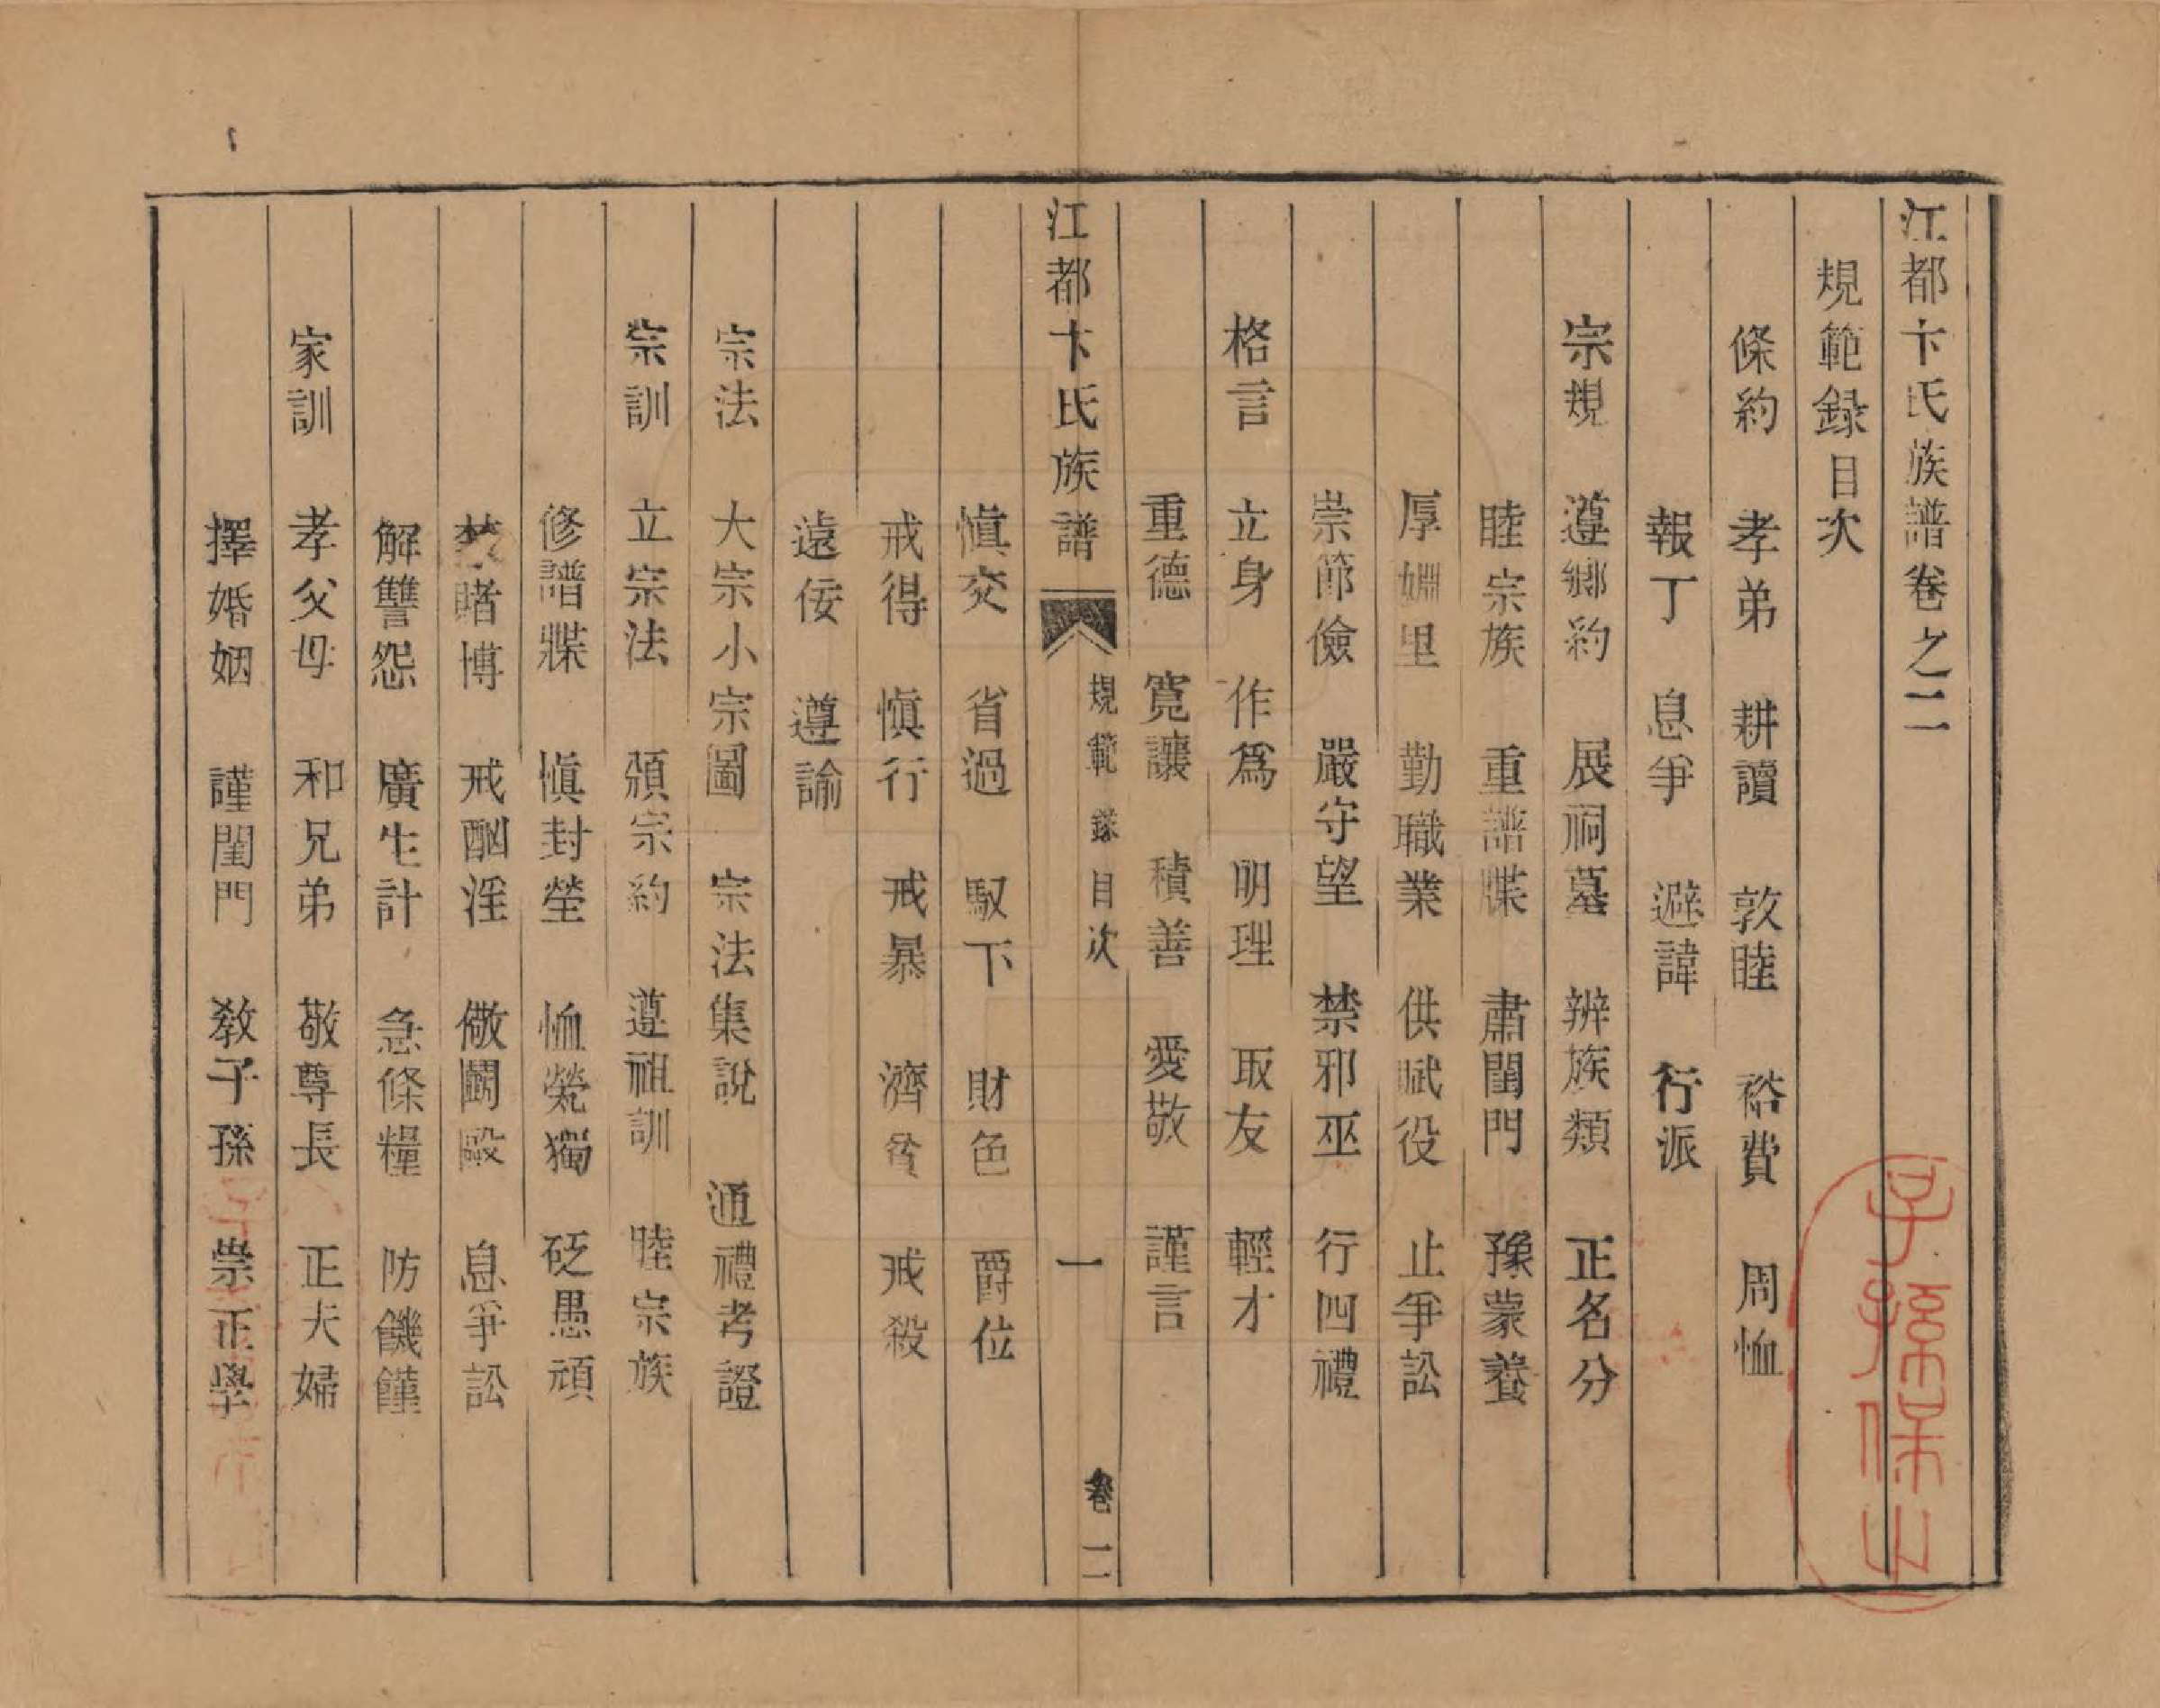 江都卞氏族譜卷之二
規範録目次
條約　孝弟　耕讀　敦睦　裕費　周恤
報丁　息爭　避諱　行派
宗規　遵鄉約　展祠墓　辨族類　正名分
睦宗族　重譜牒　肅閨門　豫蒙養
厚婣里　勤職業　供賦役　止爭訟
崇節儉　嚴守望　禁邪巫　行四禮
格言　立身　作爲　明理　取友　輕才
重德　寬讓　積善　愛敬　謹言
江都卞氏族譜　規範錄目次　一　卷二
愼交　省過　馭下　財色　爵位
戒得　愼行　戒暴　濟貧　戒殺
遠佞　遵諭
宗法　大宗小宗圖　宗法集說　通禮考證
宗訓　立宗法　頒宗約　遵祖訓　睦宗族
修譜牒　愼封塋　恤煢獨　砭愚頑
禁賭博　戒酗淫　儆鬭毆　息爭訟
解讐怨　廣生計　急條糧　防饑饉
家訓　孝父母　和兄弟　敬尊長　正夫婦
擇婚姻　謹閨門　敎子孫　崇正學
子孫保之